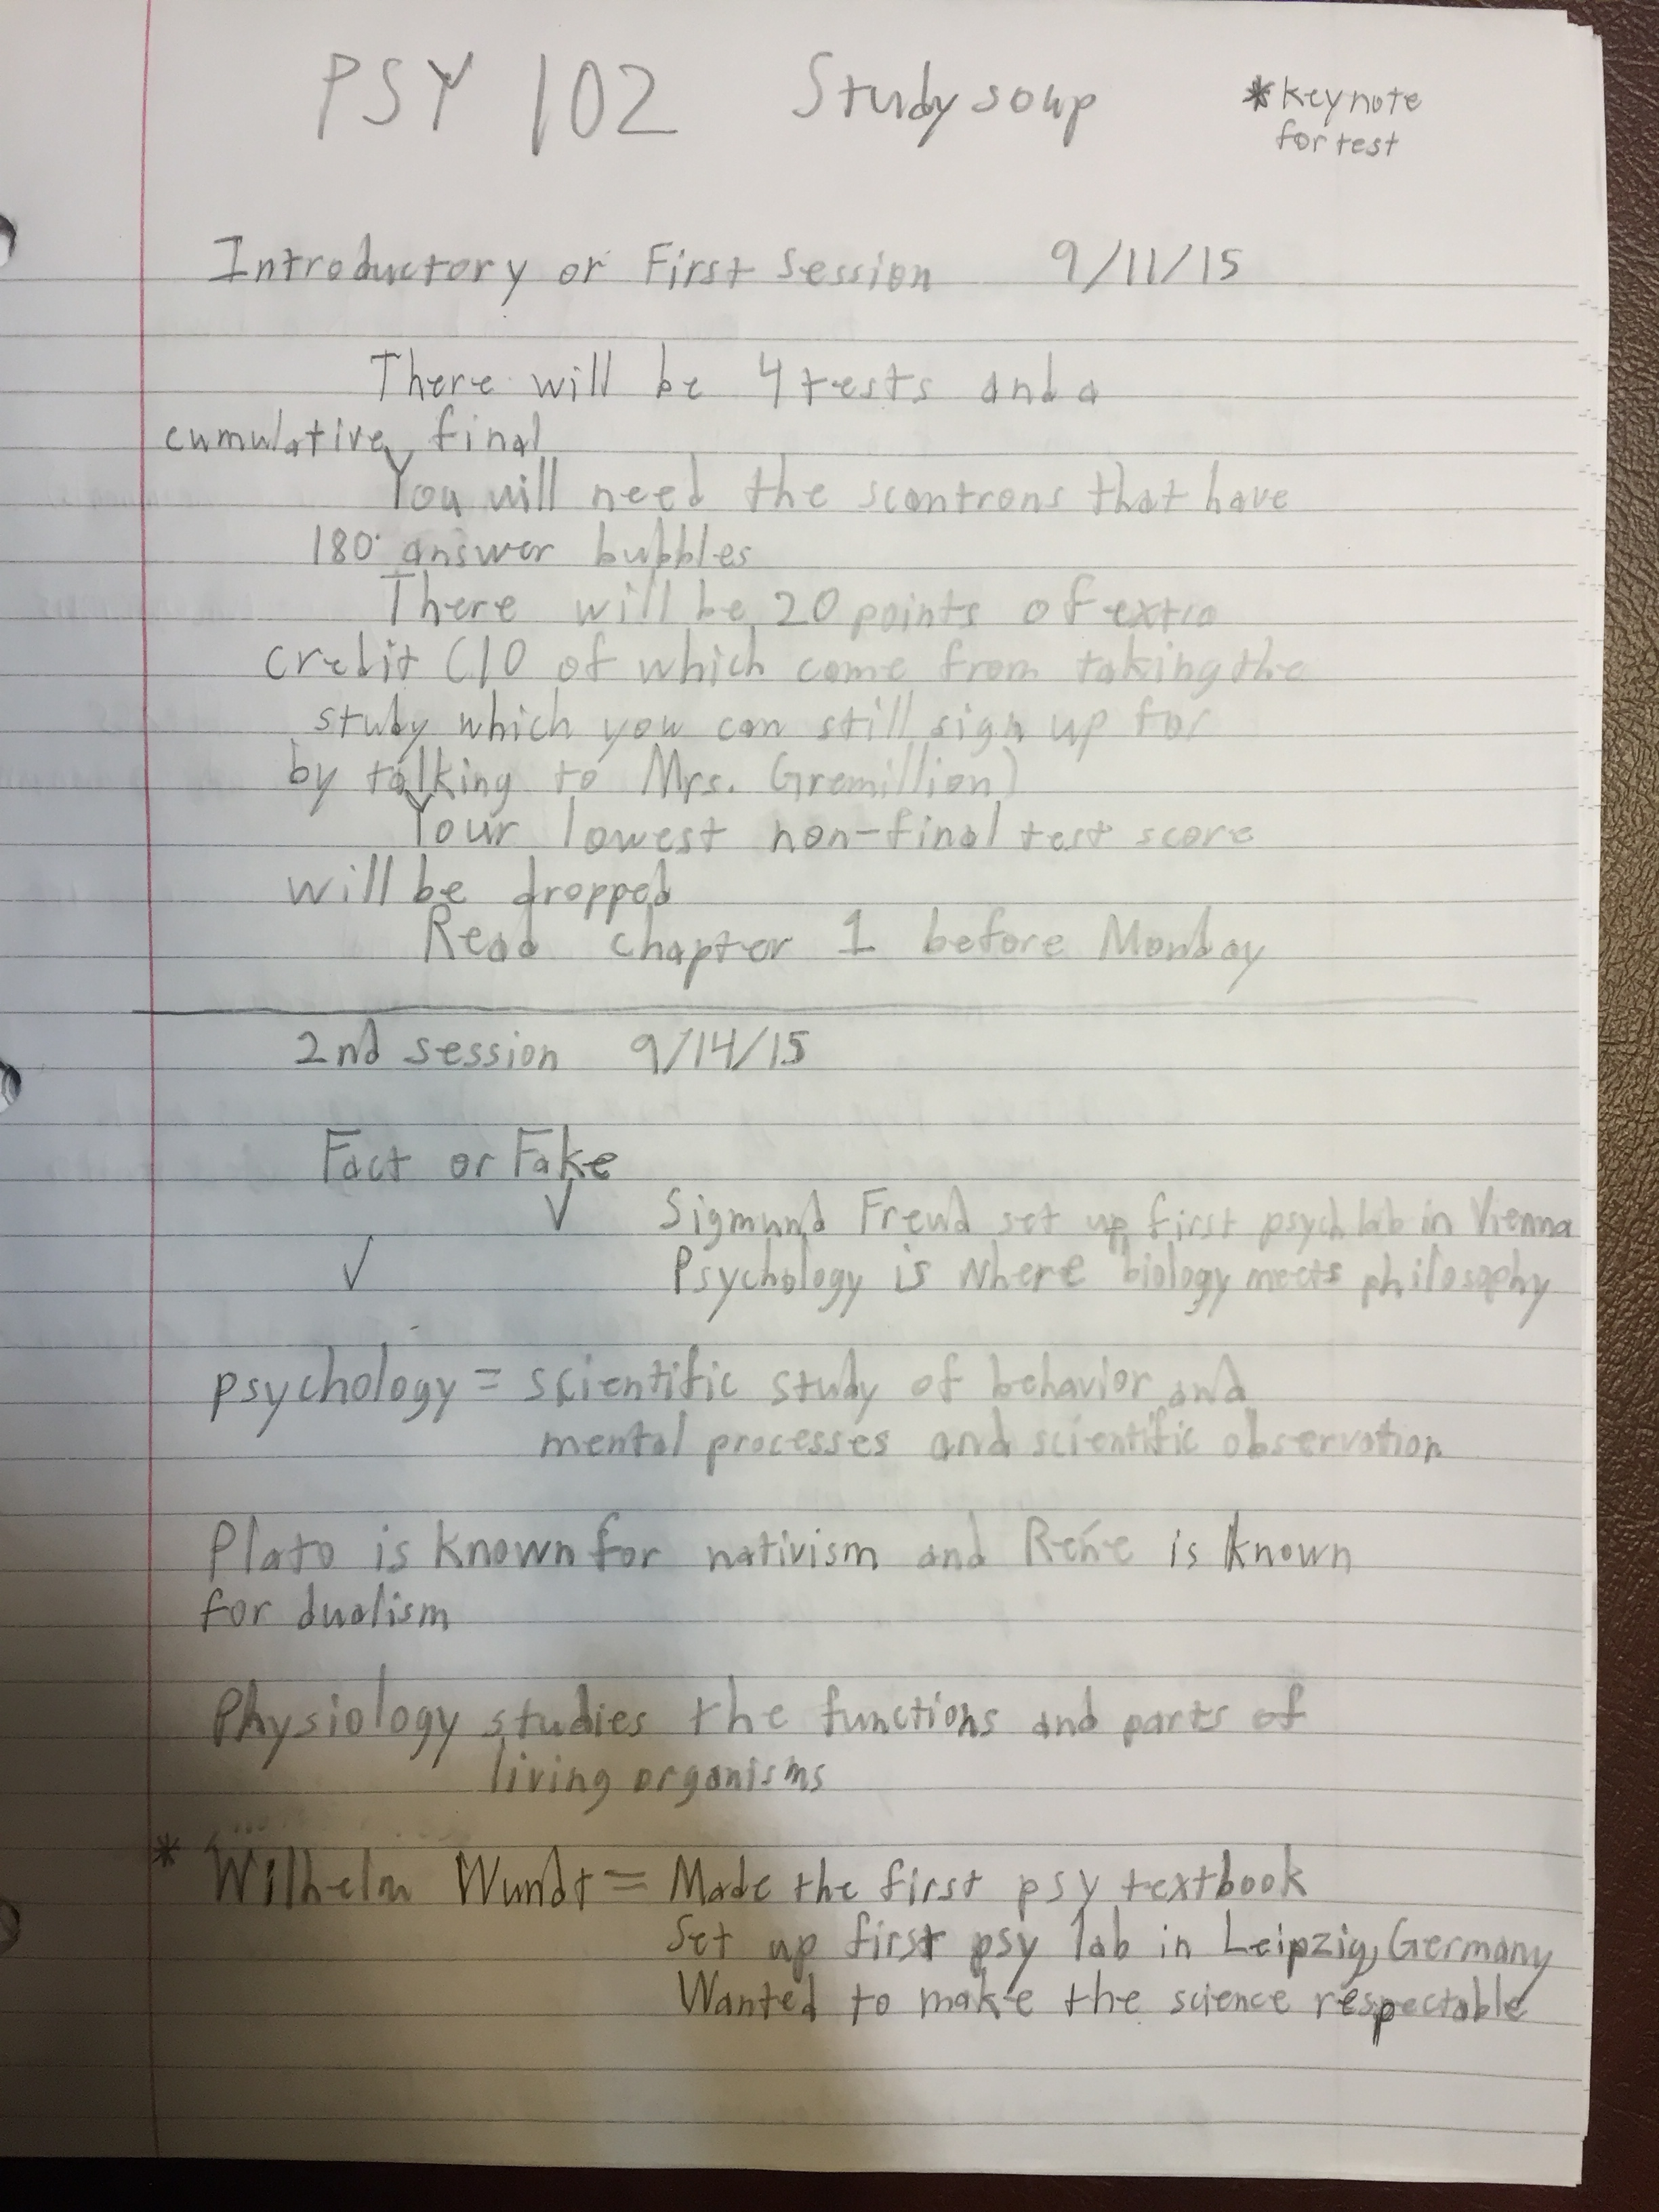 PSY 102 Studysoup *keynote
for test
Introductory or First Session 9/11/15
There will be 4 tests and a
cumulative final
You will need the scantrons that have
180 answer bubbles
There will be 20 points of extra
credit (10 of which come from taking the
study which you can still sign up for
by talking to Mrs. Gremillion)
Your lowest non-final test score
will be dropped
Read chapter 1 before Monday
2nd session 9/14/15
Fact or Fake
✓ Sigmund Freud set up first psych lab in Vienna
✓ Psychology is where biology meets philosophy
psychology = scientific study of behavior and
mental processes and scientific observation
Plato is known for nativism and René is known
for dualism
Physiology studies the functions and parts of
living organisms
* Wilhelm Wundt = Made the first psy textbook
Set up first psy lab in Leipzig, Germany
Wanted to make the science respectable